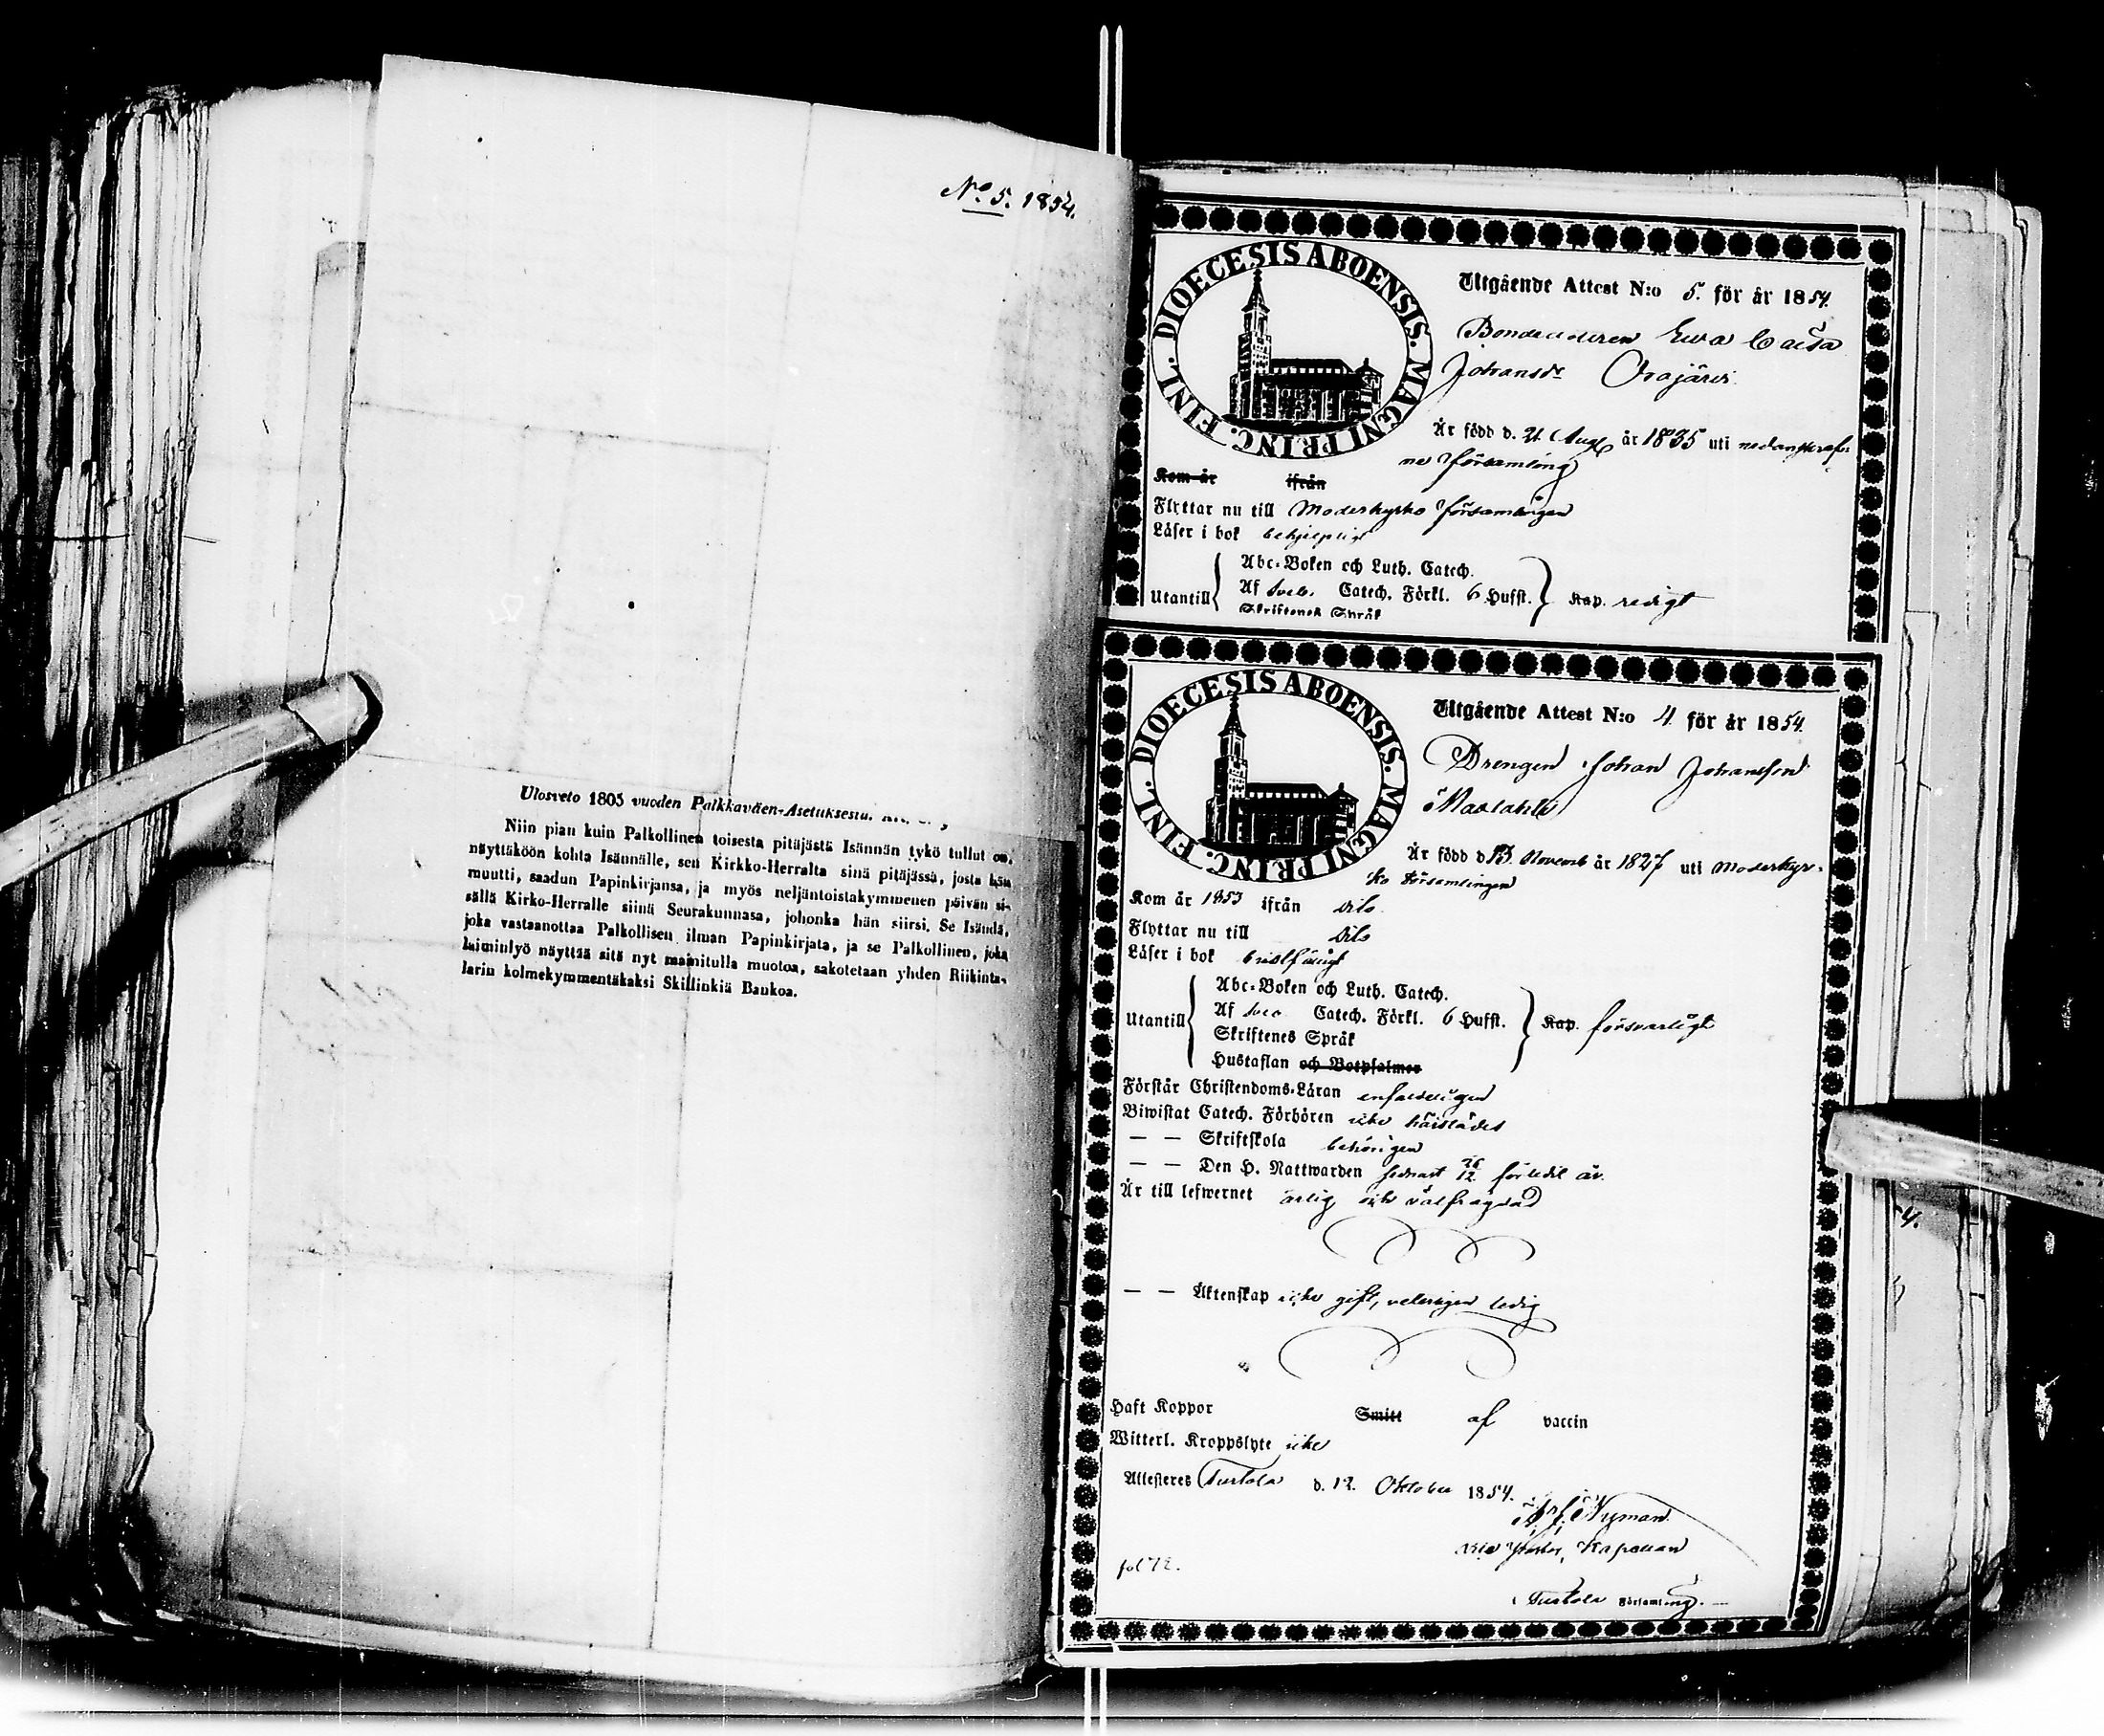 No. 5. 1854.
Ulosveto 1805 vuoden Palkkaväen-Asetuksesta.
Niin pian kuin Palkollinen toisesta pitäjästä Isännän tykö tullut on,
näyttäköön kohta Isännälle, sen Kirkko-Herralta sinä pitäjässä, josta hän
muutti, saadun Papinkirjansa, ja myös neljäntoistakymmenen päivän si-
sällä Kirko-Herralle siinä Seurakunnasa, johonka hän siirsi. Se Isändä,
joka vastaanottaa Palkollisen ilman Papinkirjata, ja se Palkollinen, joka
laiminlyö näyttää sitä nyt mainitulla muotoa, sakotetaan yhden Riikinta-
larin kolmekymmentäkaksi Skillinkiä Bankoa.
DIOECESIS ABOENSIS. MAGNI PRINC. FINL.
Utgående Attest N:o 5. för år 1854.
Bondedotren Ewa Caisa
Johansdr Orajärvi.
Är född d. 21 Aug. år 1835 uti nedanskrefv
ne församling
Kom år ifrån
Flyttar nu till Moderkyrko församlingen
Läser i bok behjelpligt
Abc-Boken och Luth. Catech.
Utantill Af Sveb. Catech. Förkl. 6 Hufst. Kap. redigt
Skriftenes Språk
DIOECESIS ABOENSIS. MAGNI PRINC. FINL.
Utgående Attest N:o 4. för år 1854.
Drengen Johan Johansson
Är född d 13. Novemb år 1827 uti Moderkyr-
ko församlingen
Kom år 1853 ifrån dito
Flyttar nu till dito
Läser i bok
Abc-Boken och Luth. Catech.
Utantill Af Sveb Catech. Förkl. 6 Hufst. Kap. försvarligt
Skriftenes Språk
Hustaflan och Botpsalmer
Förstår Christendoms-Läran enfaldeligen
Biwistat Catech. Förhören icke härstädes
— — Skriftskola behörigen
— — Den H. Nattwarden senast 26/12 förledit år.
Är till lefwernet ärlig och välfrägdad
— — Äktenskap icke gift, veterligen ledig
Haft Koppor Smitt af vaccin
Witterl. Kroppslyte icke
Attesteres Turtola d. 12. Oktober 1854.
Nyman
Kapellan
fol 72.
i Turtola Församling. —